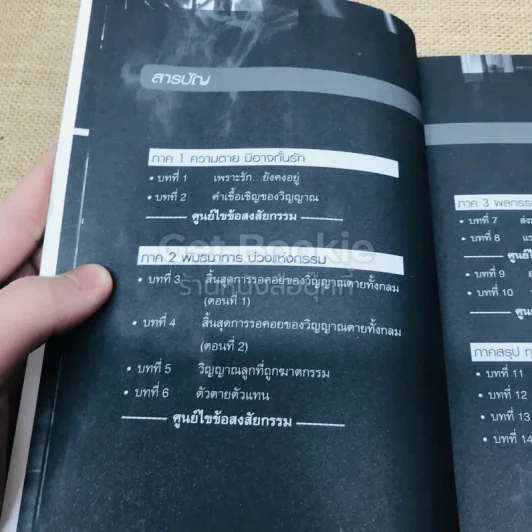 สารบัญ
ภาค 1 ความตาย มิอาจกั้นรัก
• บทที่ 1 เพราะรัก...ยังคงอยู่
• บทที่ 2 คำเชื้อเชิญของวิญญาณ
ศูนย์ไขข้อสงสัยกรรม
Get Bookie
ร้านหนังสือบุ๊คกี้
ภาค 2 พันธนาการ บ่วงแห่งกรรม
• บทที่ 3 สิ้นสุดการรอคอยของวิญญาณตายทั้งกลม
(ตอนที่ 1)
• บทที่ 4 สิ้นสุดการรอคอยของวิญญาณตายทั้งกลม
(ตอนที่ 2)
• บทที่ 5 วิญญาณลูกที่ถูกฆาตกรรม
• บทที่ 6 ตัวตายตัวแทน
ศูนย์ไขข้อสงสัยกรรม
ภาค 3 ผลกรรม
• บทที่ 7
• บทที่ 8
• บทที่ 9
• บทที่ 10
ภาคสรุป
• บทที่ 11
• บทที่ 12
• บทที่ 13
• บทที่ 14